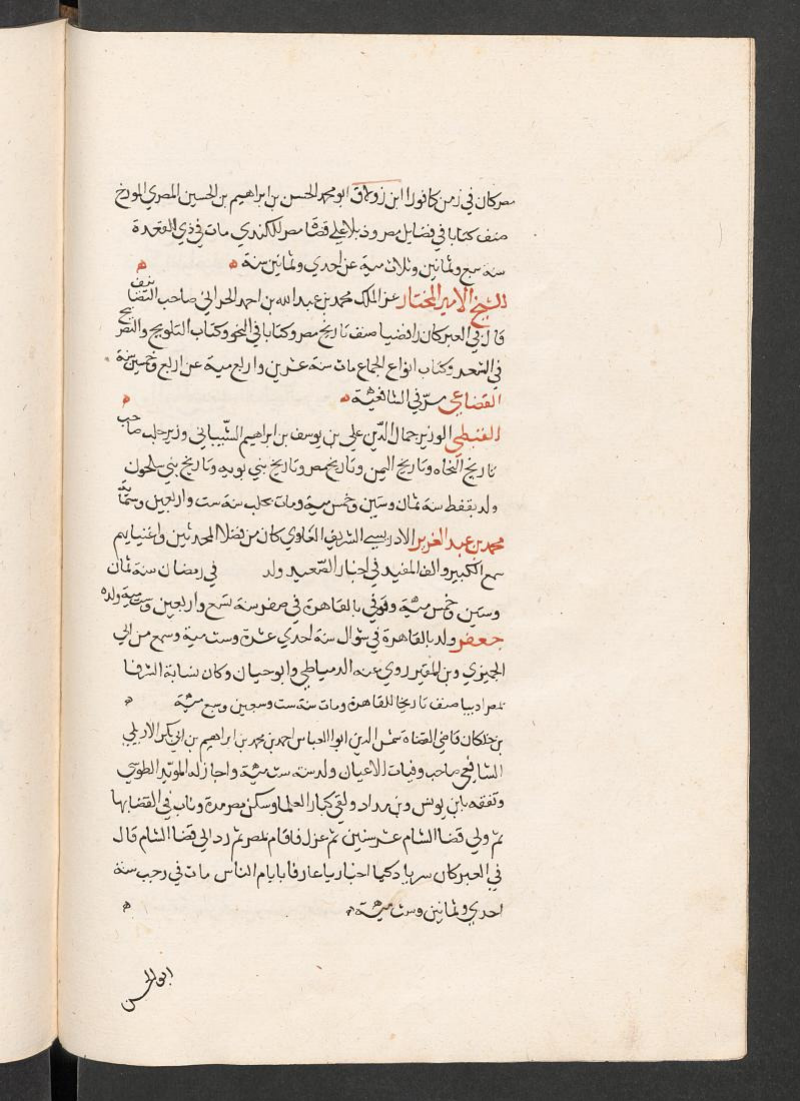 مصر كان في زمن كافورا ابن زولاق ابو محمد الحسن بن ابراهيم بن الحسين المصري المورخ
صنف كتابا في فضايل مصر وذيلا على قضاة مصر للكندي مات في ذي القعدة
سنة سبع وثمانين وثلاث مية عن احدي وثمانين سنة
الشيخ الامير المختار عز الملك محمد بن عبد الله بن احمد الحراني صاحب التصانيف
قال في العبر كان رافضيا صنف تاريخ مصر وكتابا في النجو وكتاب التلويح والتصريح
في الشعر وكتاب انواع الجماع مات سنة عشرين واربع مية عن اربع وخمسين سنة
القضاعي مر في الشافعية
القفطي الوزير جمال الدين علي بن يوسف بن ابراهيم الشيباني وزير حلب صاحب
تاريخ النحاه وتاريخ اليمن وتاريخ مصر وتاريخ بني بويه وتاريخ بني سلجون
ولد بقفط سنة ثمان وستين وخمس مية ومات بحلب سنة ست واربعين وستماية
محمد بن عبد العزيز الادريسي الشريف الفاوي كان من فضلا المحدثين واغنيايهم
سمع الكبير والف المفيد في اخبار الصعيد ولد في رمضان سنة ثمان
وستين وخمس مئية وتوفي بالقاهرة في صفر سنة تسع واربعين وست مية ولده
جعفر ولد بالقاهرة في شوال سنة احدي عشرة وست مية وسمع من ابن
الجميزي وبن المقير روي عنه الدمياطي وابو حيان وكان نسابة الشرفا
بمصر اديبا صنف تاريخا للقاهرة ومات سنة ست وسبعين وسبع مئية
بن خلكان قاضي القضاة شمس الدين ابو العباس احمد بن محمد بن ابراهيم بن ابي بكر الاربلي
الشافعي صاحب وفيات الاعيان ولد سنة ست مئية واجاز له المويد الطوسي
وتفقه بابن يونس وبن شداد ولقي كبار العلما وسكن مصر مدة وناب في القضا بها
ثم ولي قضا الشام عشر سنين ثم عزل فاقام بمصر ثم رد الي قضا الشام قال
في العبر كان سريا ذكيا اخباريا عارفا بايام الناس مات في رجب سنة
احدي وثمانين وست مئية
ابو الحسن